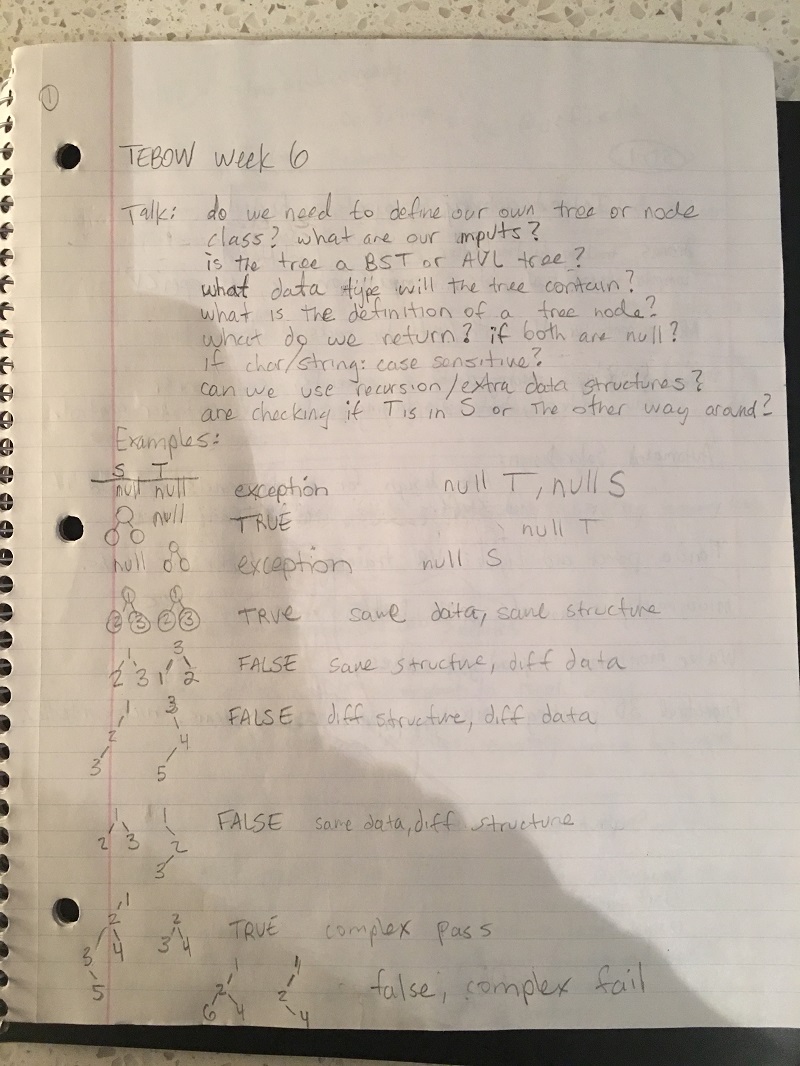 1
TEBOW week 6
Talk: do we need to define our own tree or node
class? what are our inputs?
is the tree a BST or AVL tree?
what data type will the tree contain?
what is the definition of a tree node?
what do we return? if both are null?
if char/string: case sensitive?
can we use recursion/extra data structures?
are checking if T is in S or the other way around?
Examples:
S T
null null exception null T, null S
null TRUE null T
null exception null S
1 1
2 3 2 3 TRUE same data, same structure
1 3
2 3 1 2 FALSE same structure, diff data
1 3
2 4
3 5 FALSE diff structure, diff data
1 1
2 3 2
3 FALSE same data, diff structure
1
2 2
3 4 3 4 TRUE complex pass
5
1 1
2 2
6 4 4 false, complex fail